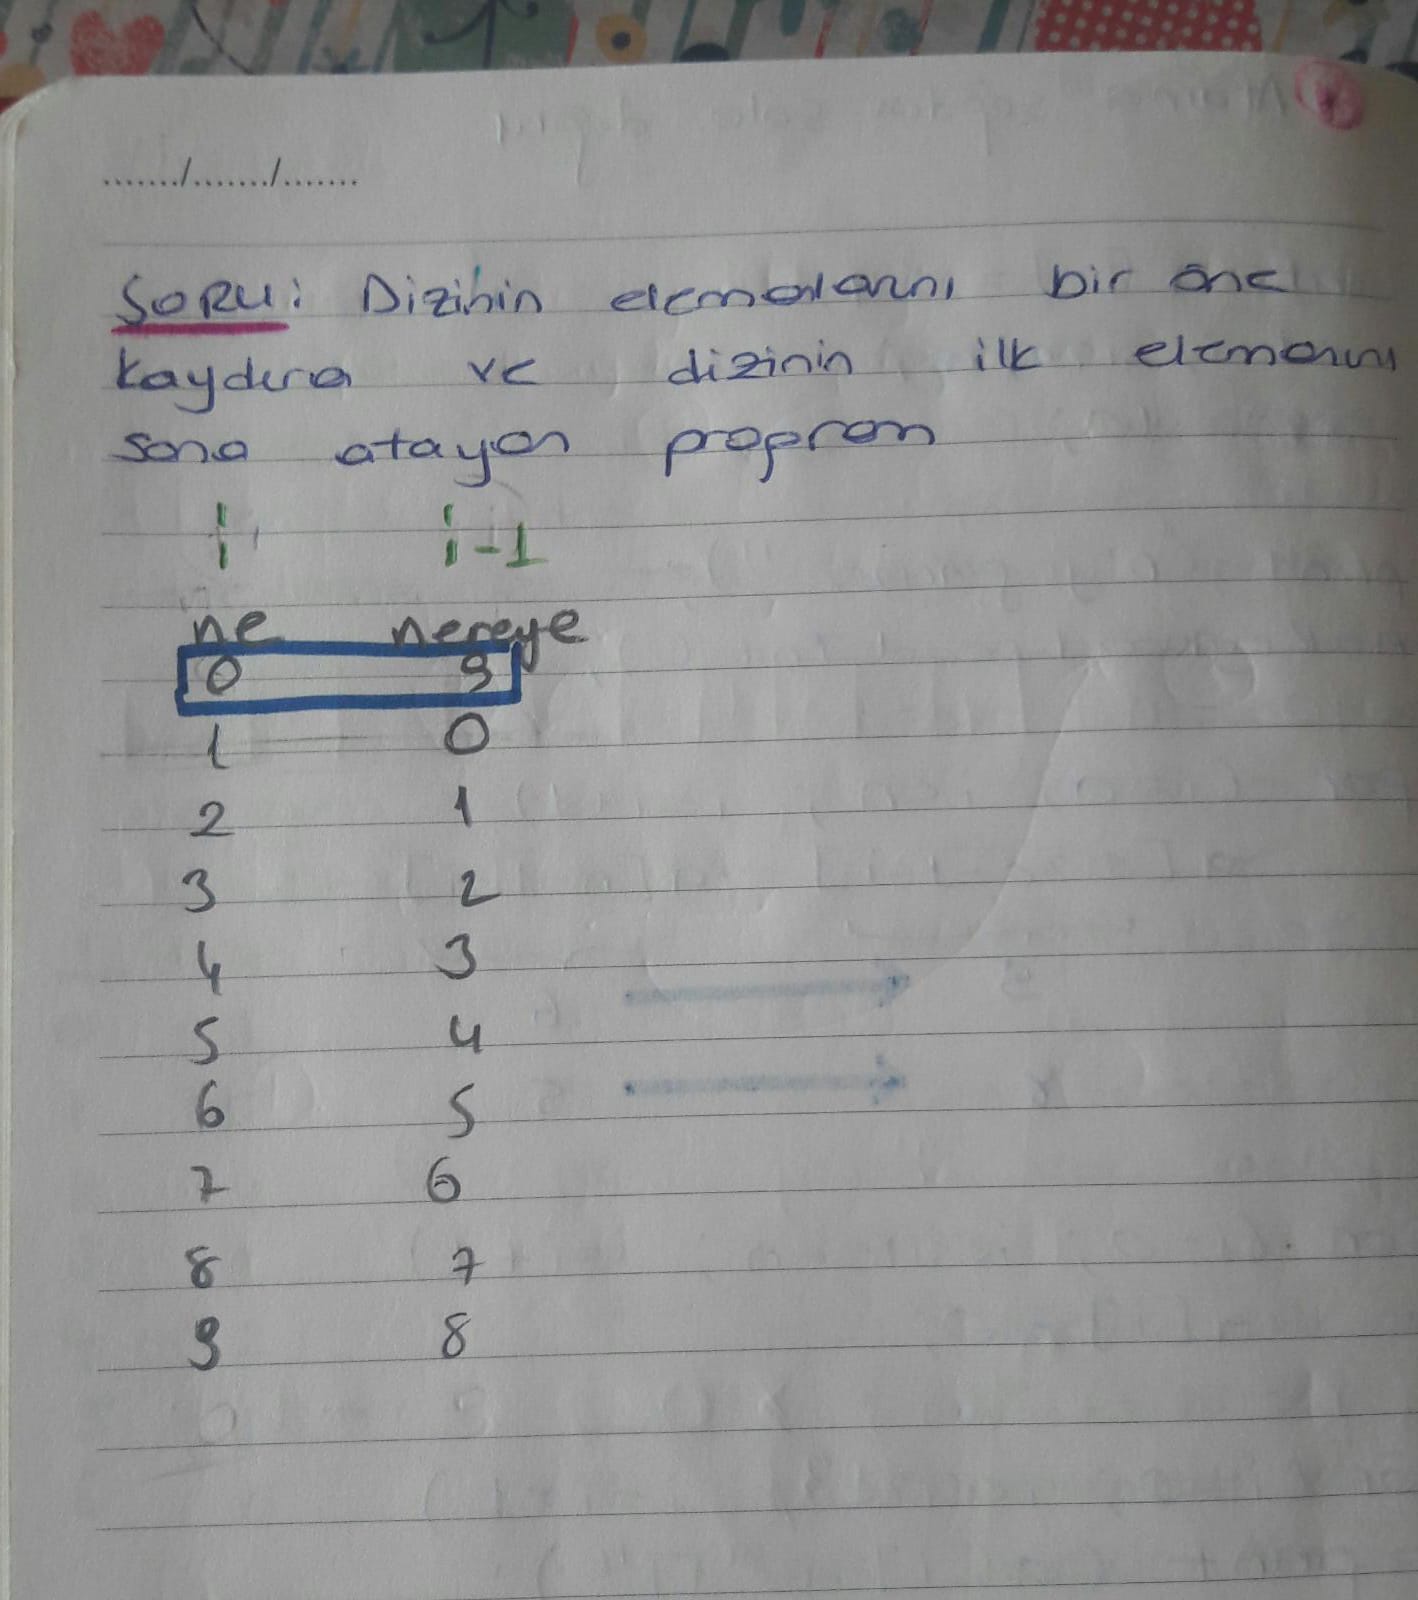 ......./......./.......
SORU: Dizinin elemanlarını bir öne
kaydıran ve dizinin ilk elemanını
sona atayan program
i i-1
ne nereye
0 9
1 0
2 1
3 2
4 3
5 4
6 5
7 6
8 7
9 8